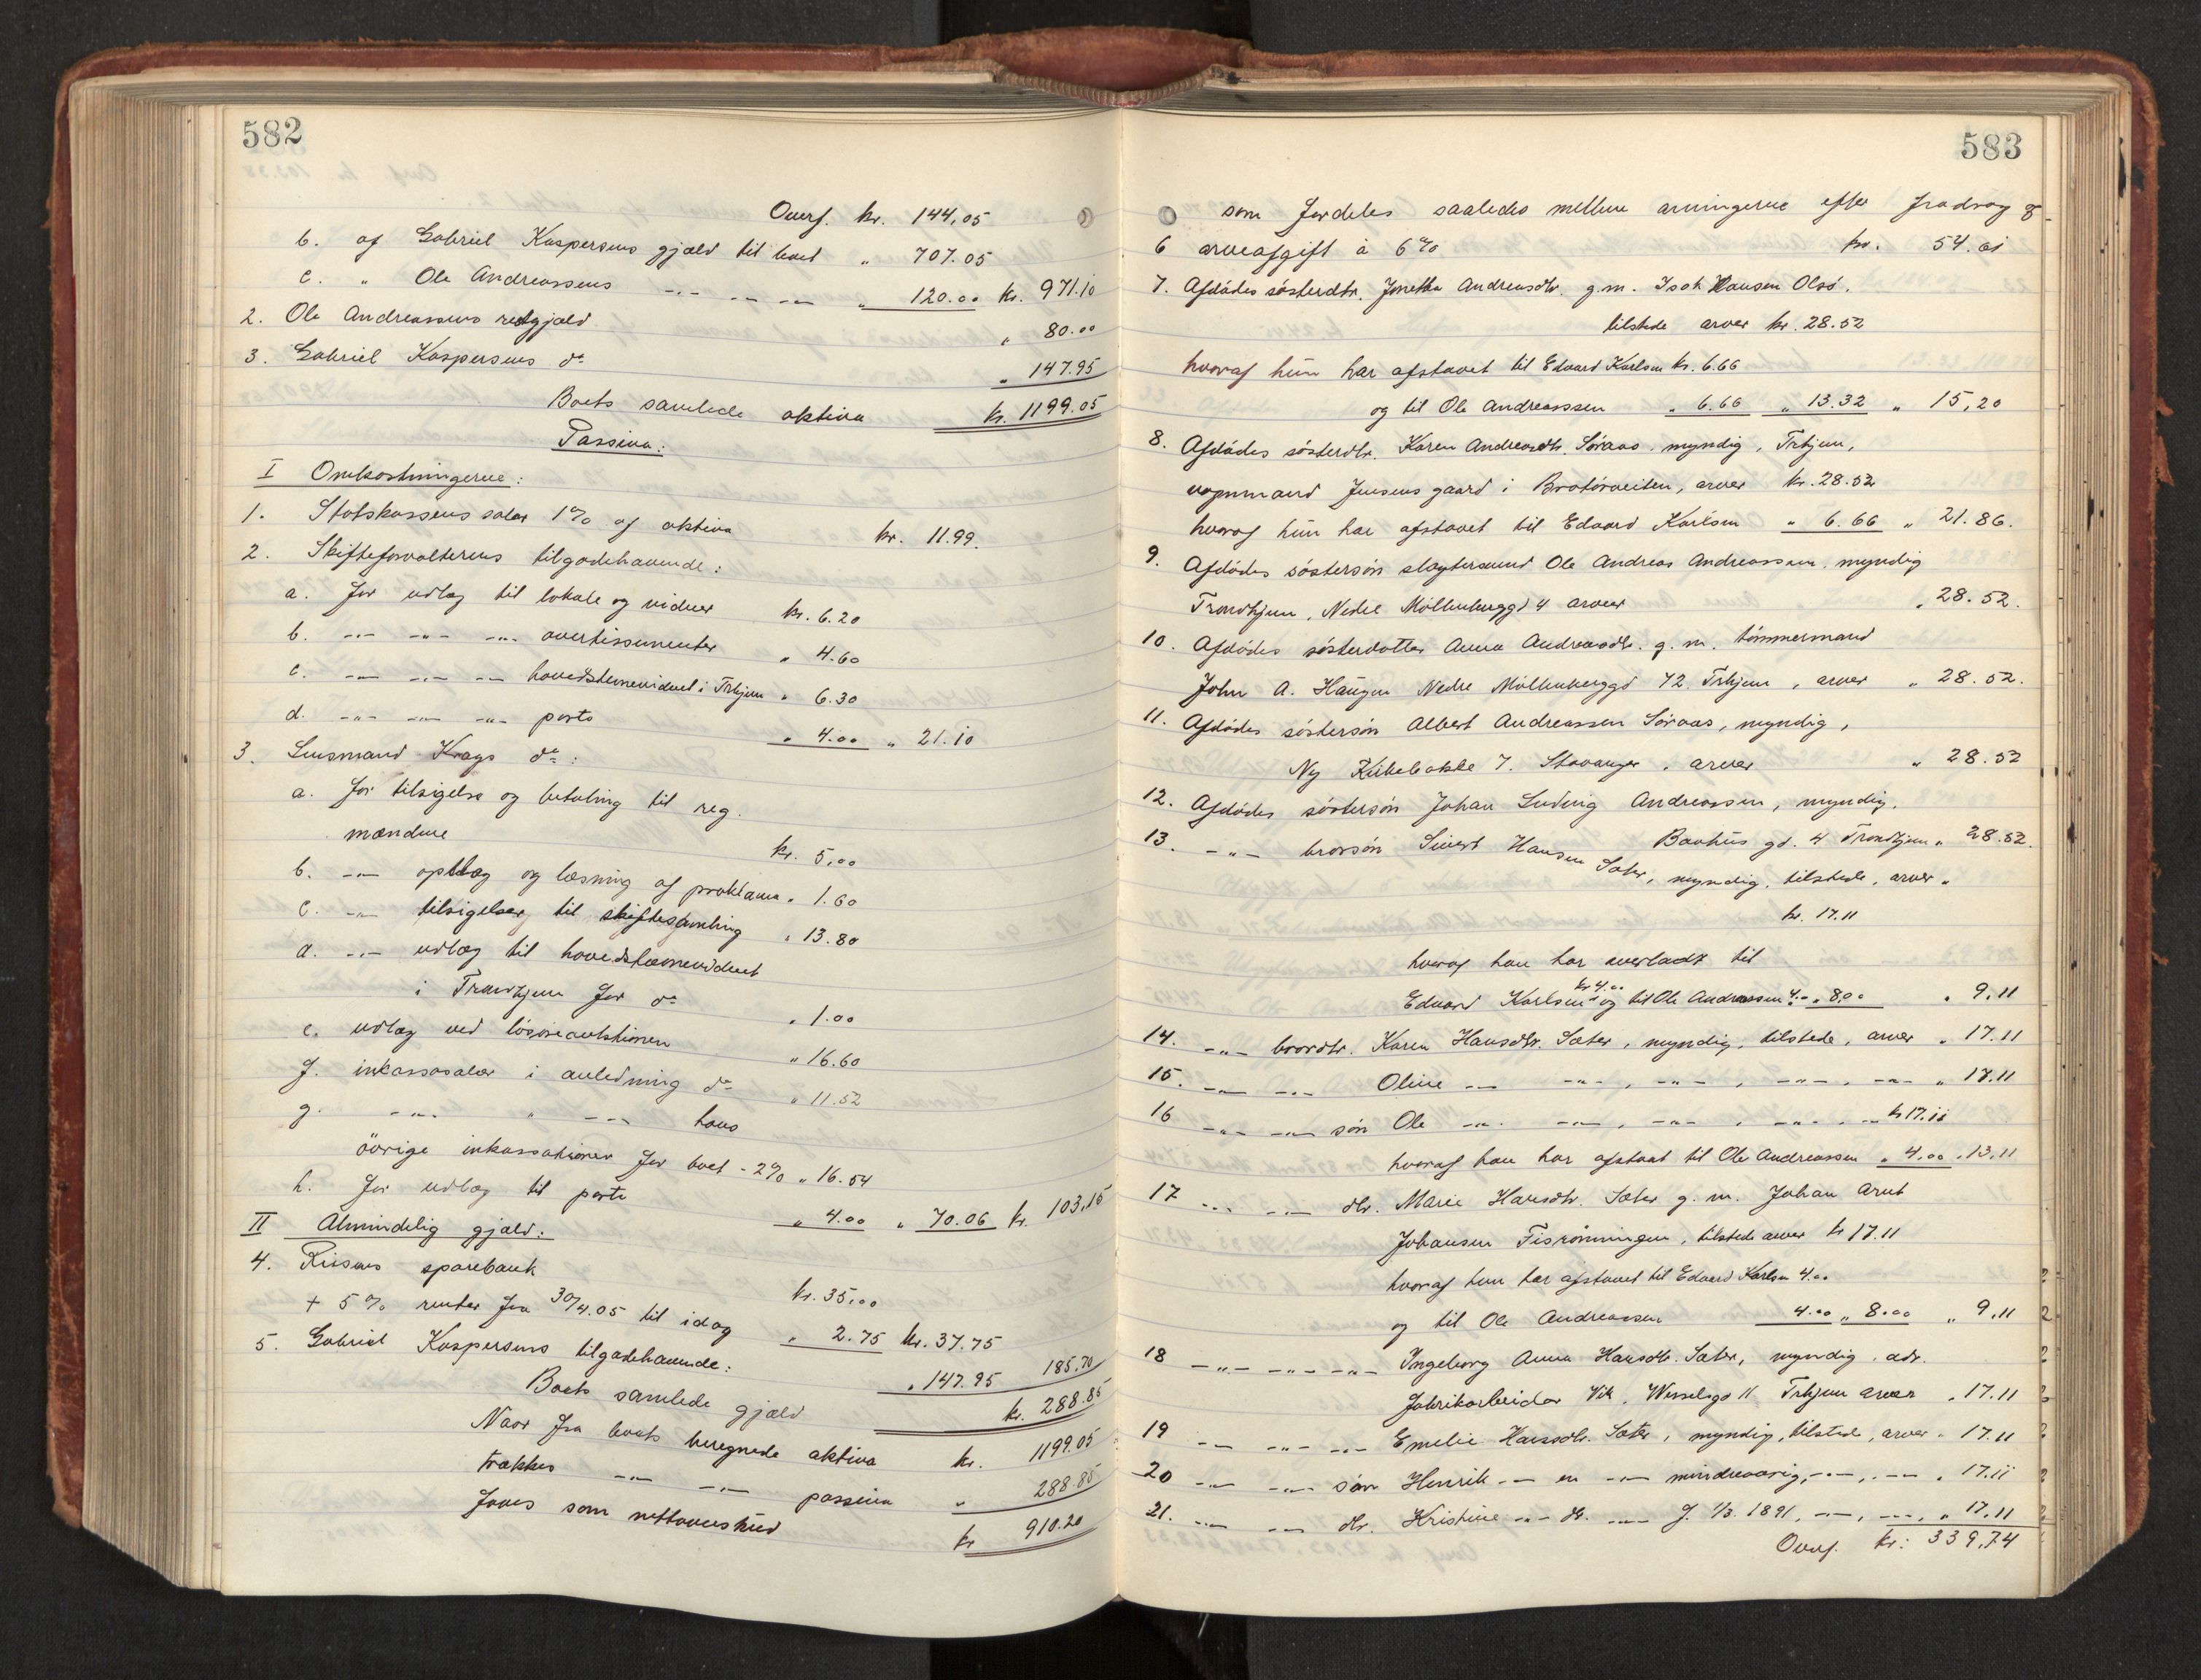 582
Overf. kr. 144,05
b. af Gabriel Kaspersens gjæld til boet " 707.05
c. " Ole Andreassens -"- -"- -"- " 120.00 kr. 971.10
2. Ole Andreassens restgjæld " 80.00
3. Gabriel Kaspersens do " 147.95
Boets samlede aktiva kr. 1199.05
Passiva:
I Omkostningerne:
1. Statskassens salær 1% af aktiva kr. 11.99.
2. Skifteforvalterens tilgodehavende:
a. For udlæg til lokale og vidner kr. 6.20
b. -"- -"- -"- avertissementer " 4.60
c. -"- -"- -"- hovedstevnevidnet i Trhjem " 6.30
d. -"- -"- -"- porto " 4.00 " 21.10
3. Lensmand Krags do:
a. for tilsigelse og betaling til reg.
mændene kr. 5,00
b. -"- opslag og læsning af proklama " 1.60
c. -"- tilsigelser til skiftesamling " 13.80
d. -"- udlæg til hovedstævnevidnet
i Trondhjem for do " 1.00
e. udlæg ved løsøreauktionen " 16.60
f. inkassosalær i anledning do " 11.52
g. -"- " -"- hans
øvrige inkassationer for boet - 2% " 16.54
h. for udlæg til porto " 4.00 " 70.06 kr. 103,15
II Almindelig gjæld:
4. Rissens sparebank kr. 35,00
+ 5% renter fra 30/4.05 til idag " 2.75 kr. 37.75
5. Gabriel Kaspersens tilgodehavende: " 147.95 185,70
Boets samlede gjæld kr. 288.85
Naar fra boets beregnede aktiva kr. 1199.05
trækkes -"- -"- passiva " 288.85
faaes som nettooverskud kr 910.20
583
som fordeles saaledes mellem arvingerne efter fradrag af
6 arveafgift à 6% kr. 54.61
7. Afdødes søsterdtr. Andreasdtr. g.m. Isak Hansen Olsø.
tilstede arver kr. 28.52
hvoraf hun har afstaaet til Edvard Karlsen kr. 6.66
og til Ole Andreasssen " 6.66 " 13.32 " 15,20
8. Afdødes søsterdtr. Karen Andreasdtr. Søraas, myndig, Trhjem,
vognmand Jensens gaard i Bratørveiten, arver kr. 28.52
hvoraf hun har afstaaet til Edvard Karlsen " 6.66 " 21.86.
9. Afdødes søstersøn slagtersvend Ole Andreas Andreassen, myndig
Trondhjem, Nedre Møllenberggd 4 arver " 28.52.
10. Afdødes søsterdatter Anna Andreasdtr. g. m. tømmermand
John A. Haugen Nedre Møllenberggd 72 Trhjem, arver " 28.52.
11. Afdødes søstersøn Albert Andreassen Søraas, myndig,
Ny Kirkebakke 7. Stavanger, arver " 28.52
12. Afdødes søstersøn Johan Ludvig Andreassen, myndig,
Bakhus gd. 4 Trondhjem " 28.52.
13. -"- brorsøn Sivert Hansen Sæter, myndig, tilstede, arver "
kr. 17.11
hvoraf han har overladt til
Edvard Karlsen kr 4.00 og til Ole Andreassen 4.00 " 8,00 " 9,11
14. -"- brordtr. Karen Hansdtr. Sæter, myndig, tilstede, arver " 17.11
15. -"- -"- Oline -"- -"-, -"-, -"-, -"- " 17.11
16 -"- -"- søn Ole -"- -"-, -"-, -"-, -"- kr 17.11
hvoraf han har afstaat til Ole Andreassen " 4,00 " 13,11
17 -"- -"- dtr. Marie Hansdtr. Sæter g. m. Johan Arnt
Johansen Fisrønningen, tilstede arver kr 17.11
hvoraf hun har afstaaet til Edvard Karlsen 4.00
og til Ole Andreassen 4.00 " 8.00 " 9,11
18 -"- -"- -"- Ingeborg Anna Hansdtr. Sæter, myndig, adr.
fabrikarbeider Vik, Wesselsgd 11 Trhjem arver " 17.11
19 -"- -"- -"- Emelie Hansdtr. Sæter, myndig, tilstede, arver " 17.11
20 -"- -"- søn Henrik -"- en -"- mindreaarig, -"-, -"- " 17.11
21. -"- -"- dtr. Kristine -"- dr. -"- f. 1/3. 1891, -"-, -"-, " 17.11
Overf. kr: 339,74